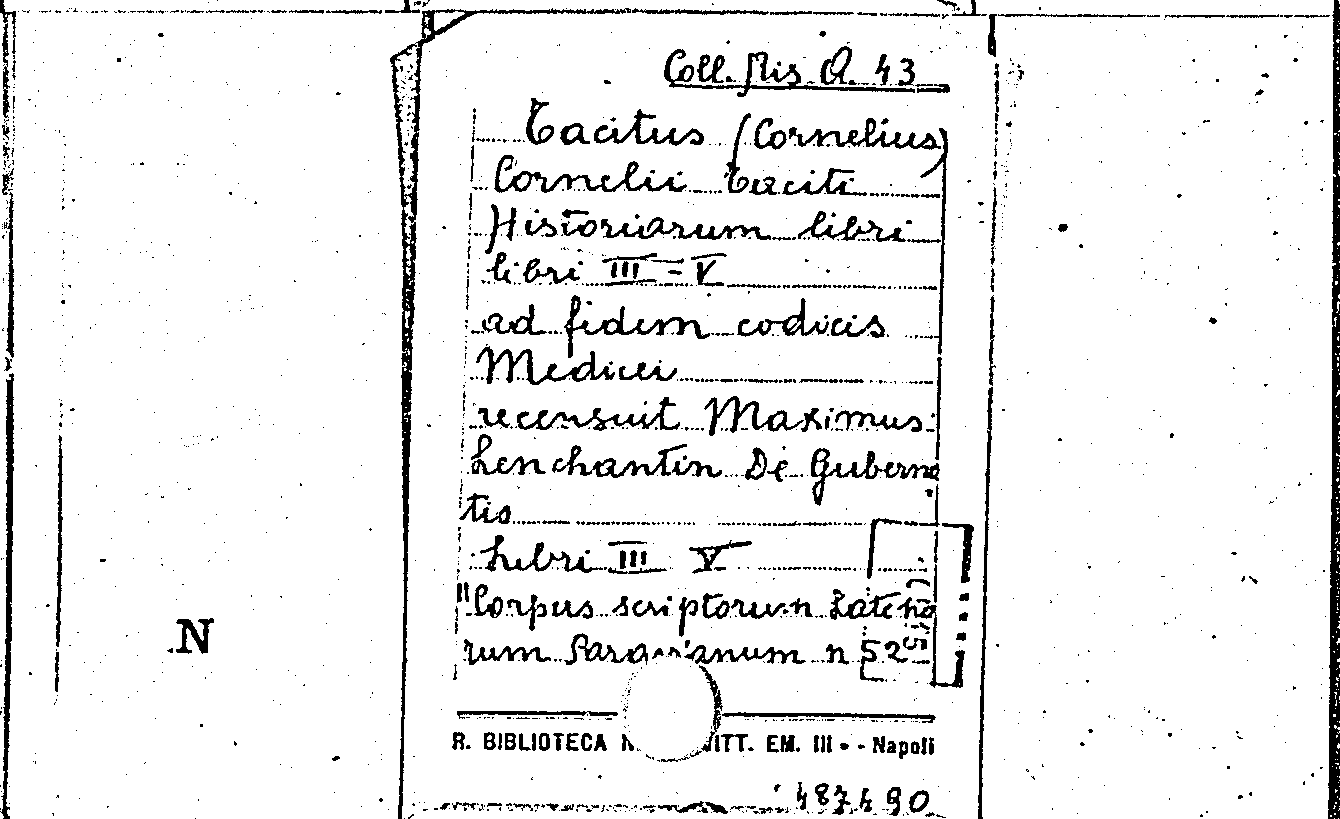 Coll. Mis A. 43
Tacitus (Cornelius)
Cornelii Taciti
Historiarum libri
libri III - V
ad fidem codicis
Medicei
recensuit Maximus
Lenchantin De Guberna
tis
Libri III V
"Corpus scriptorum Latino
rum Paravianum n 52
N
R. BIBLIOTECA N VITT. EM. III - Napoli
487490